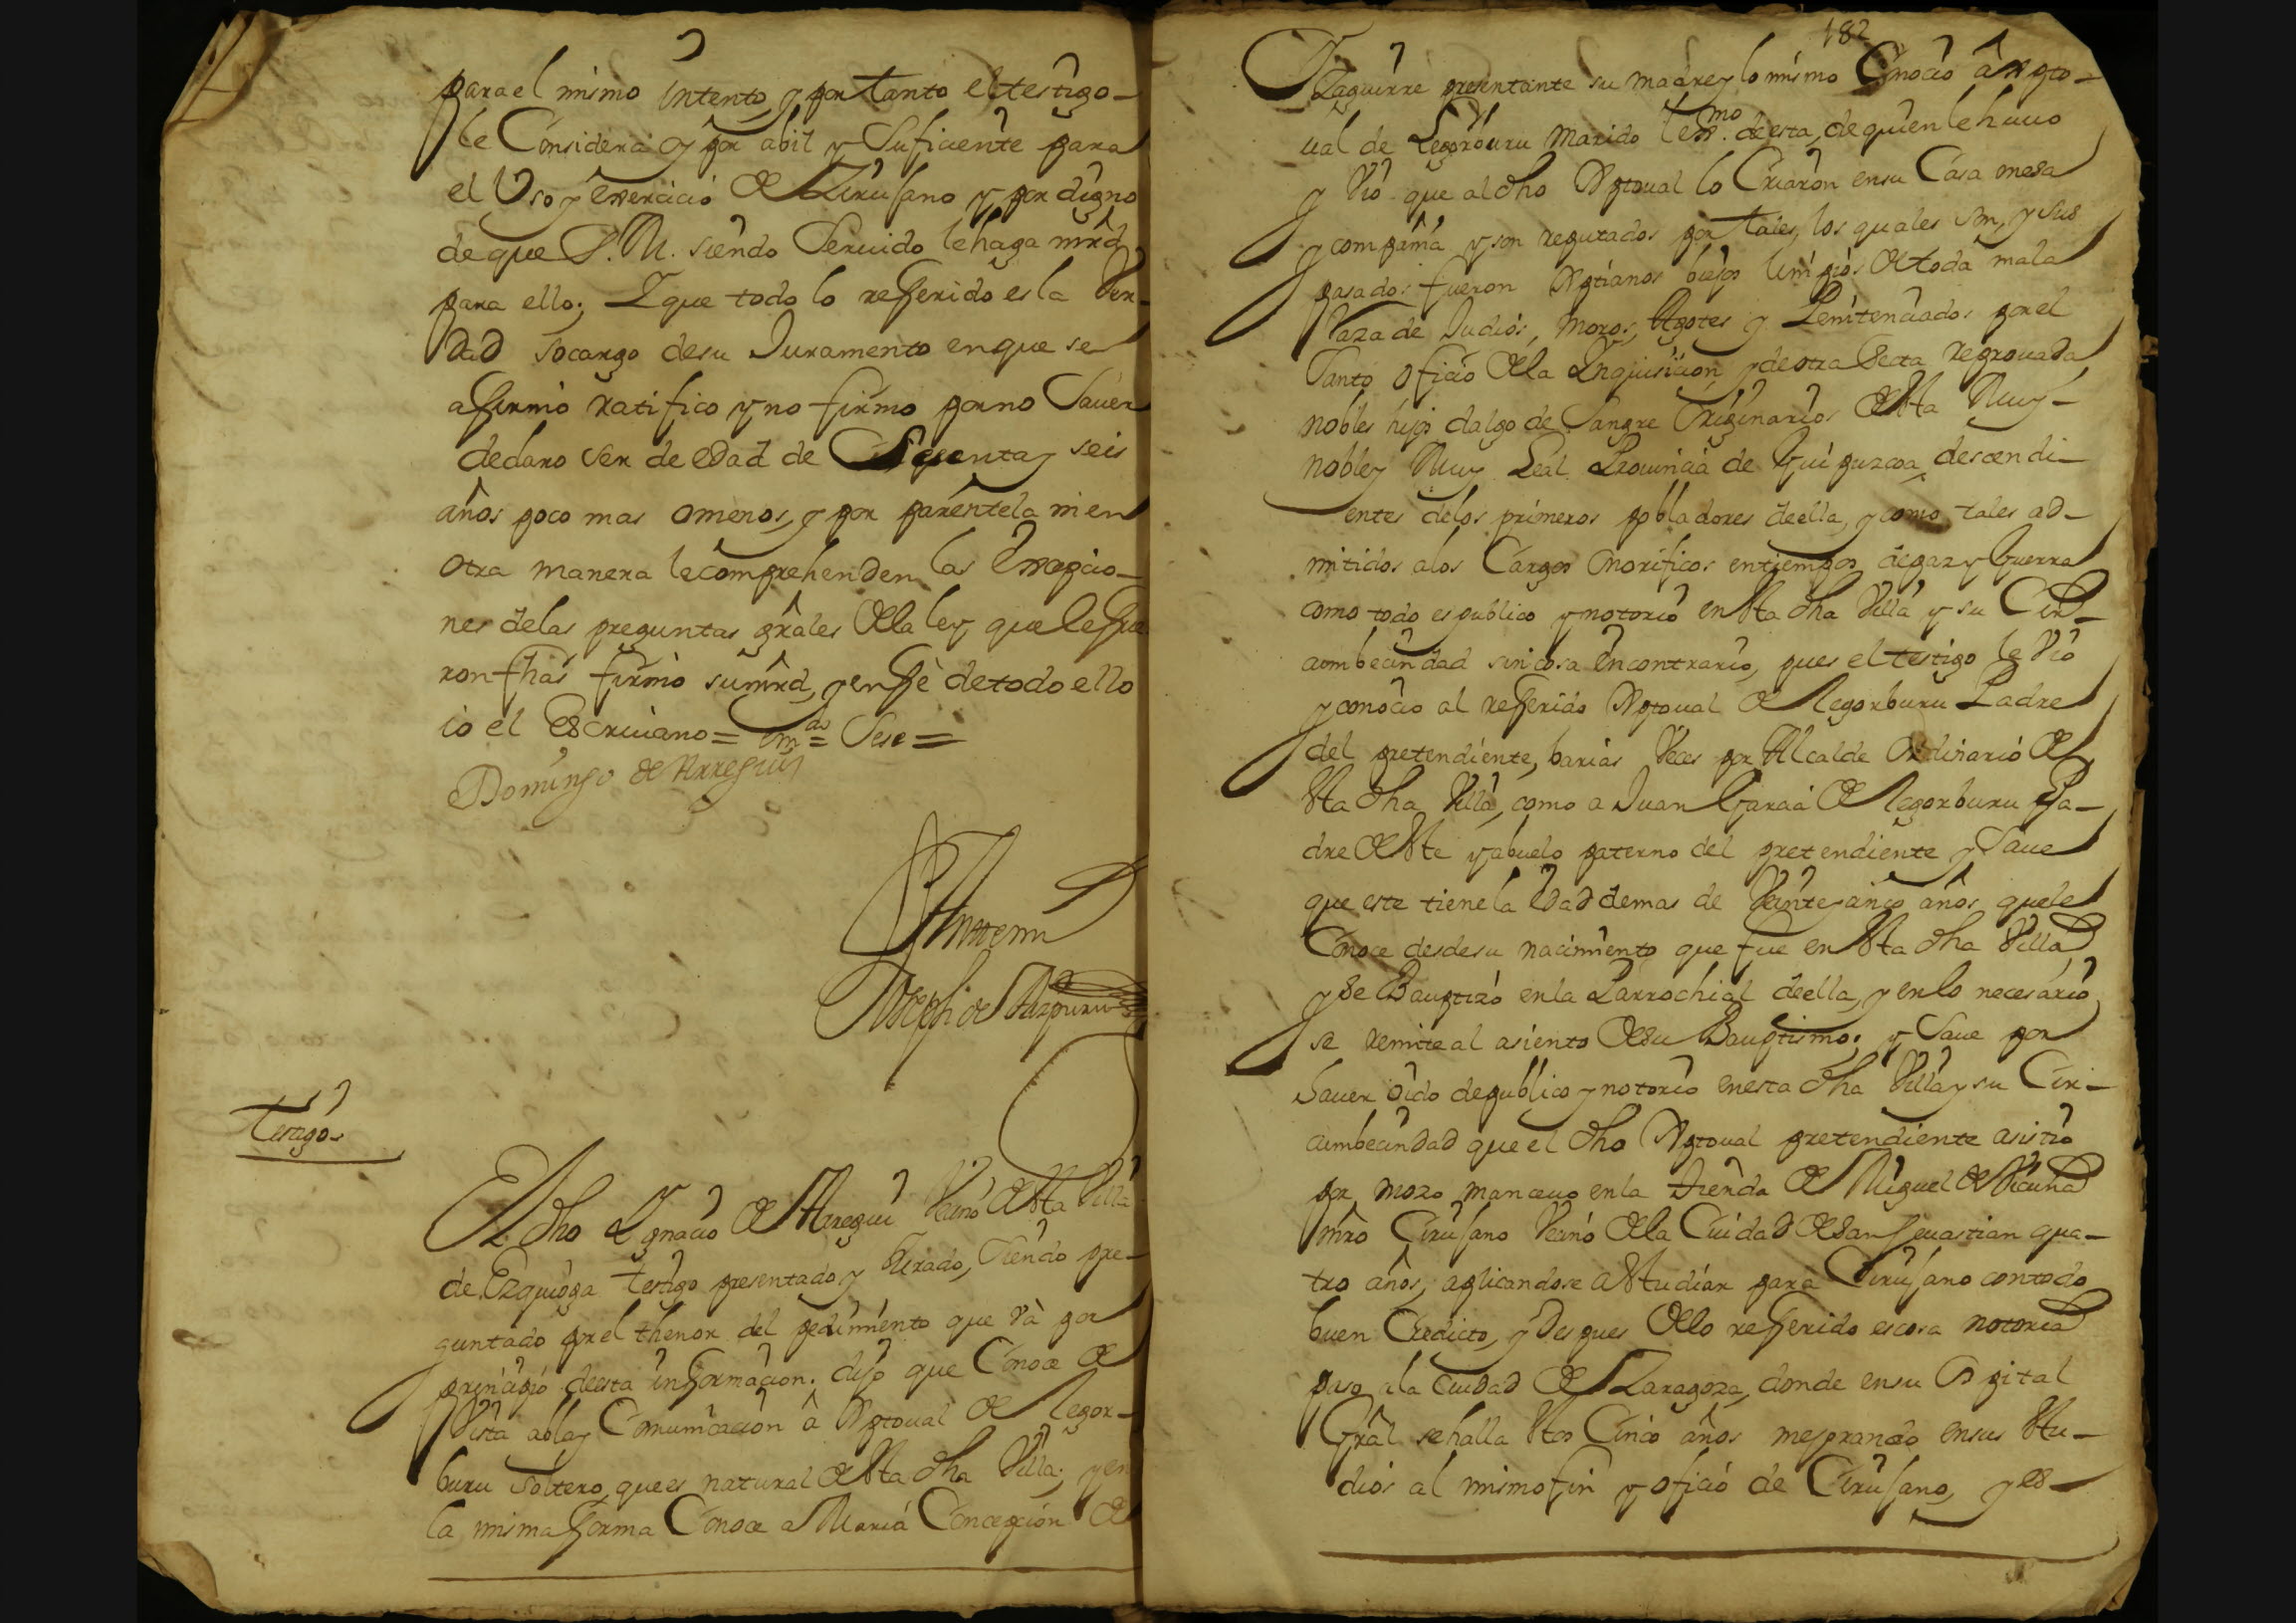 para el mismo Intento, y por tanto el testigo
le Considera y por abil y Suficiente para
el Uso y exercicio de Zirujano y por digno
de que S. M. siendo Seruido le haga mrd
para ello; Y que todo lo refferido es la Ver-
dad socargo de su Juramento en que se
affirmó ratifico y no firmo por no Sauer
declaro ser de edad de Sesenta y seis
años poco mas o menos, y por parentela ni en
otra manera le comprehenden las Excepcio-
nes de las preguntas grales de la ley que le fue
ron fhas firmó su mrd, y en ffè de todo ello
io el Escriuano = Em.do = Sese =
Domingo de Arregui
Antemi
Joseph de
Testigo
El dho Ygnacio de Arregui Vecino de Sta Villa
de Ezquioga testigo presentado y Jurado, Siendo pre-
guntado por el thenor del pedimiento que và por
principio de esta informacion. dijo que Conoce de
Vista abla y Comunicacion â Xptoual de Legor-
buru soltero, que es natural de Sta dha Villa; y en
la misma fforma Conoce a Maria Concepcion de
182
Yzaguirre presentante su madre y lo mismo Conocio â Xpto-
ual de Legorburu Marido lexmo. de esta, de quien le huuo
y Vió que al dho Xptoual lo Criaron en su Casa mesa
y compañia y son reputados por tales, los quales son, y sus
pasados fueron Xptianos biejos limpios de toda mala
Raza de Judios, Moros, Agotes y Penitenciados por el
Santo oficio de la Inquisicion y de otra Secta reprouada,
nobles hijos dalgo de Sangre Originarios de Sta Muy
noble y Muy Leal Prouincia de Guipuzcoa, descendi-
entes de los primeros pobladores de ella, y como tales ad-
mitidos a los Cargos Onorificos en tiempos de paz y Guerra
como todo es publico y notorio en Sta dha Villa y su Cir-
cumbecindad sin cosa En contrario, pues el testigo le Vio
y conocio al refferido Xptoual de Legorburu Padre
del pretendiente, barias Veces por Alcalde Ordinario de
Sta dha Villa, como a Juan Garcia de Legorburu Pa-
dre de Ste y abuelo paterno del pretendiente y Saue
que este tiene la Edad de mas de Veinte y cinco años, que le
Conoce desde su nacimiento que fue en Sta dha Villa,
y Se Bauptizó en la Parrochial de ella, y en lo necesario
se remite al asiento de su Bauptismo; y Saue por
Sauer oido de publico y notorio en esta dha Villa y su Cir-
cumbecindad que el dho Xptoual pretendiente asistió
por mozo manceuo en la tienda de Miguel de Vicuña
mro Cirujano Vecino de la Ciudad de San Seuastian qua-
tro años, aplicandose a Studiar para Cirujano con todo
buen Credicto, y despues de lo refferido es cosa notoria
paso a la Ciudad de Zaragoza, donde en su Ospital
Grâl se halla Stos Cinco años mejorando en sus Stu-
dios al mismo fin y oficio de Cirujano, y es-